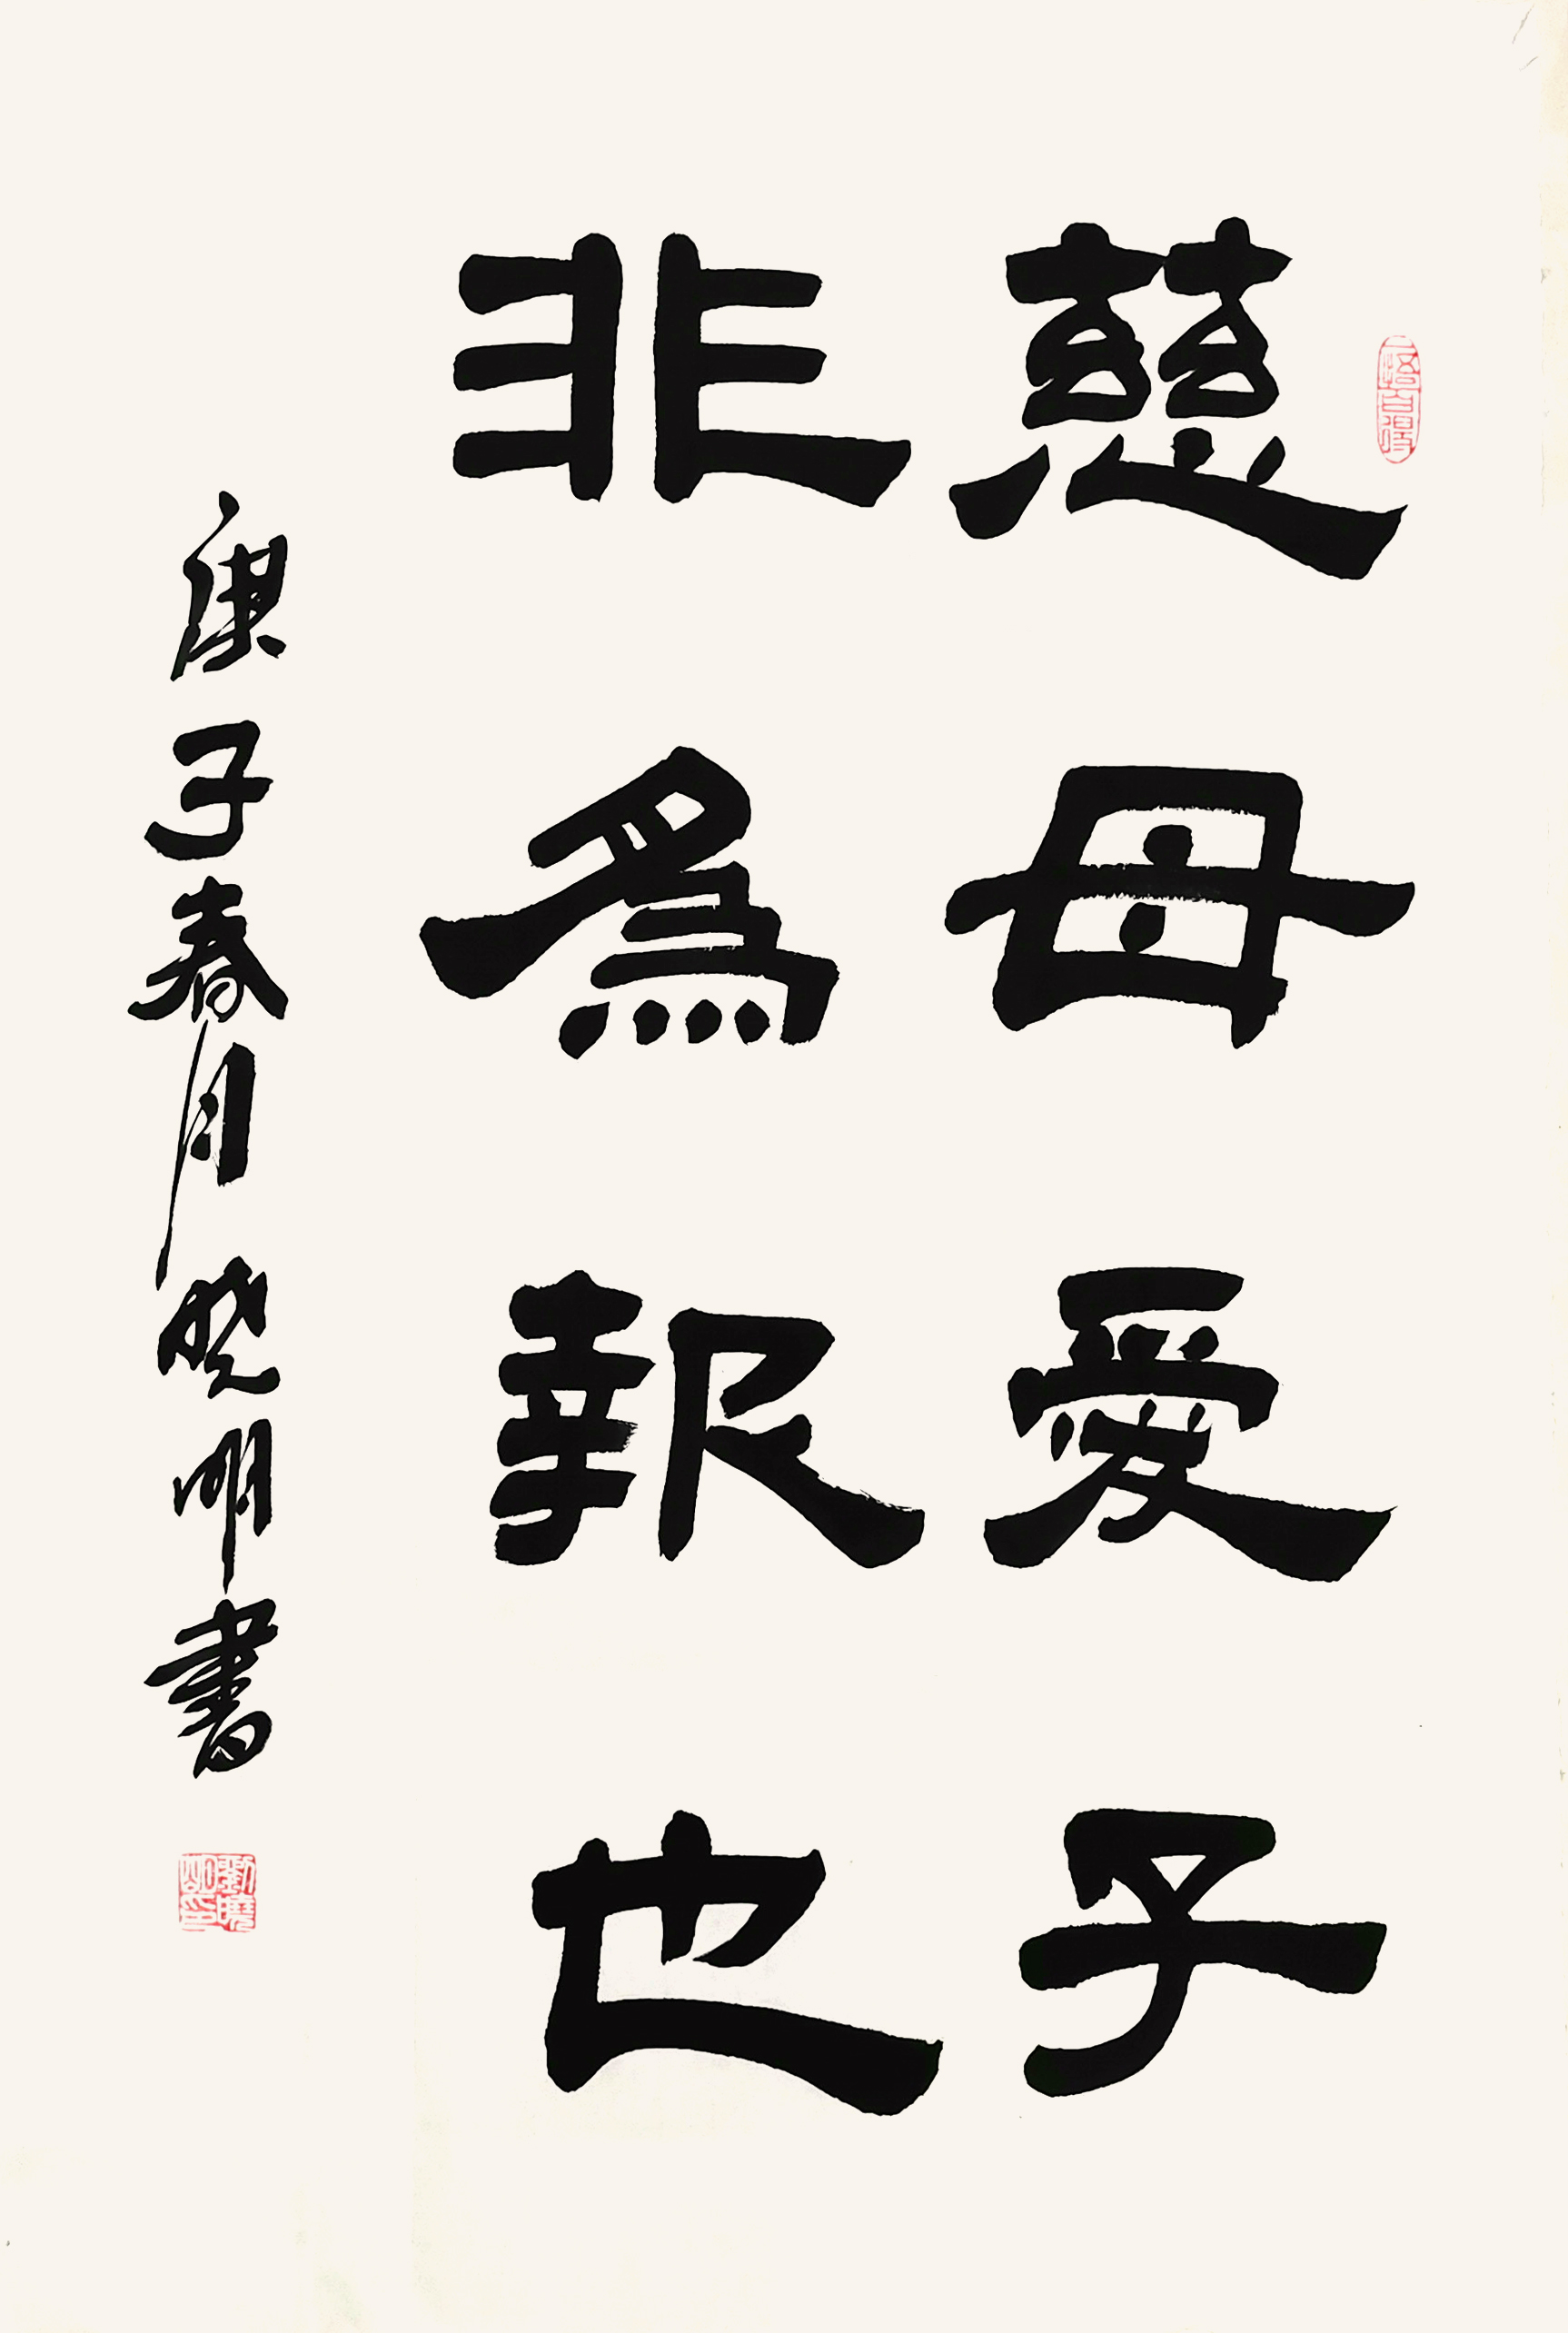 慈母愛子
非為報也
庚子春月曉明書
劉曉明印